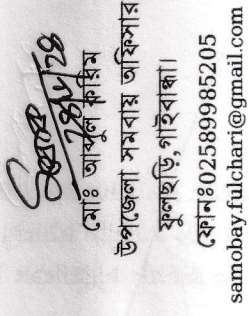 ২৪/৮/২৪
মোঃ আব্দুল করিম
উপজেলা সমবায় অফিসার
ফুলছড়ি, গাইবান্ধা।
ফোনঃ02589985205
samobay.fulchari@gmail.com